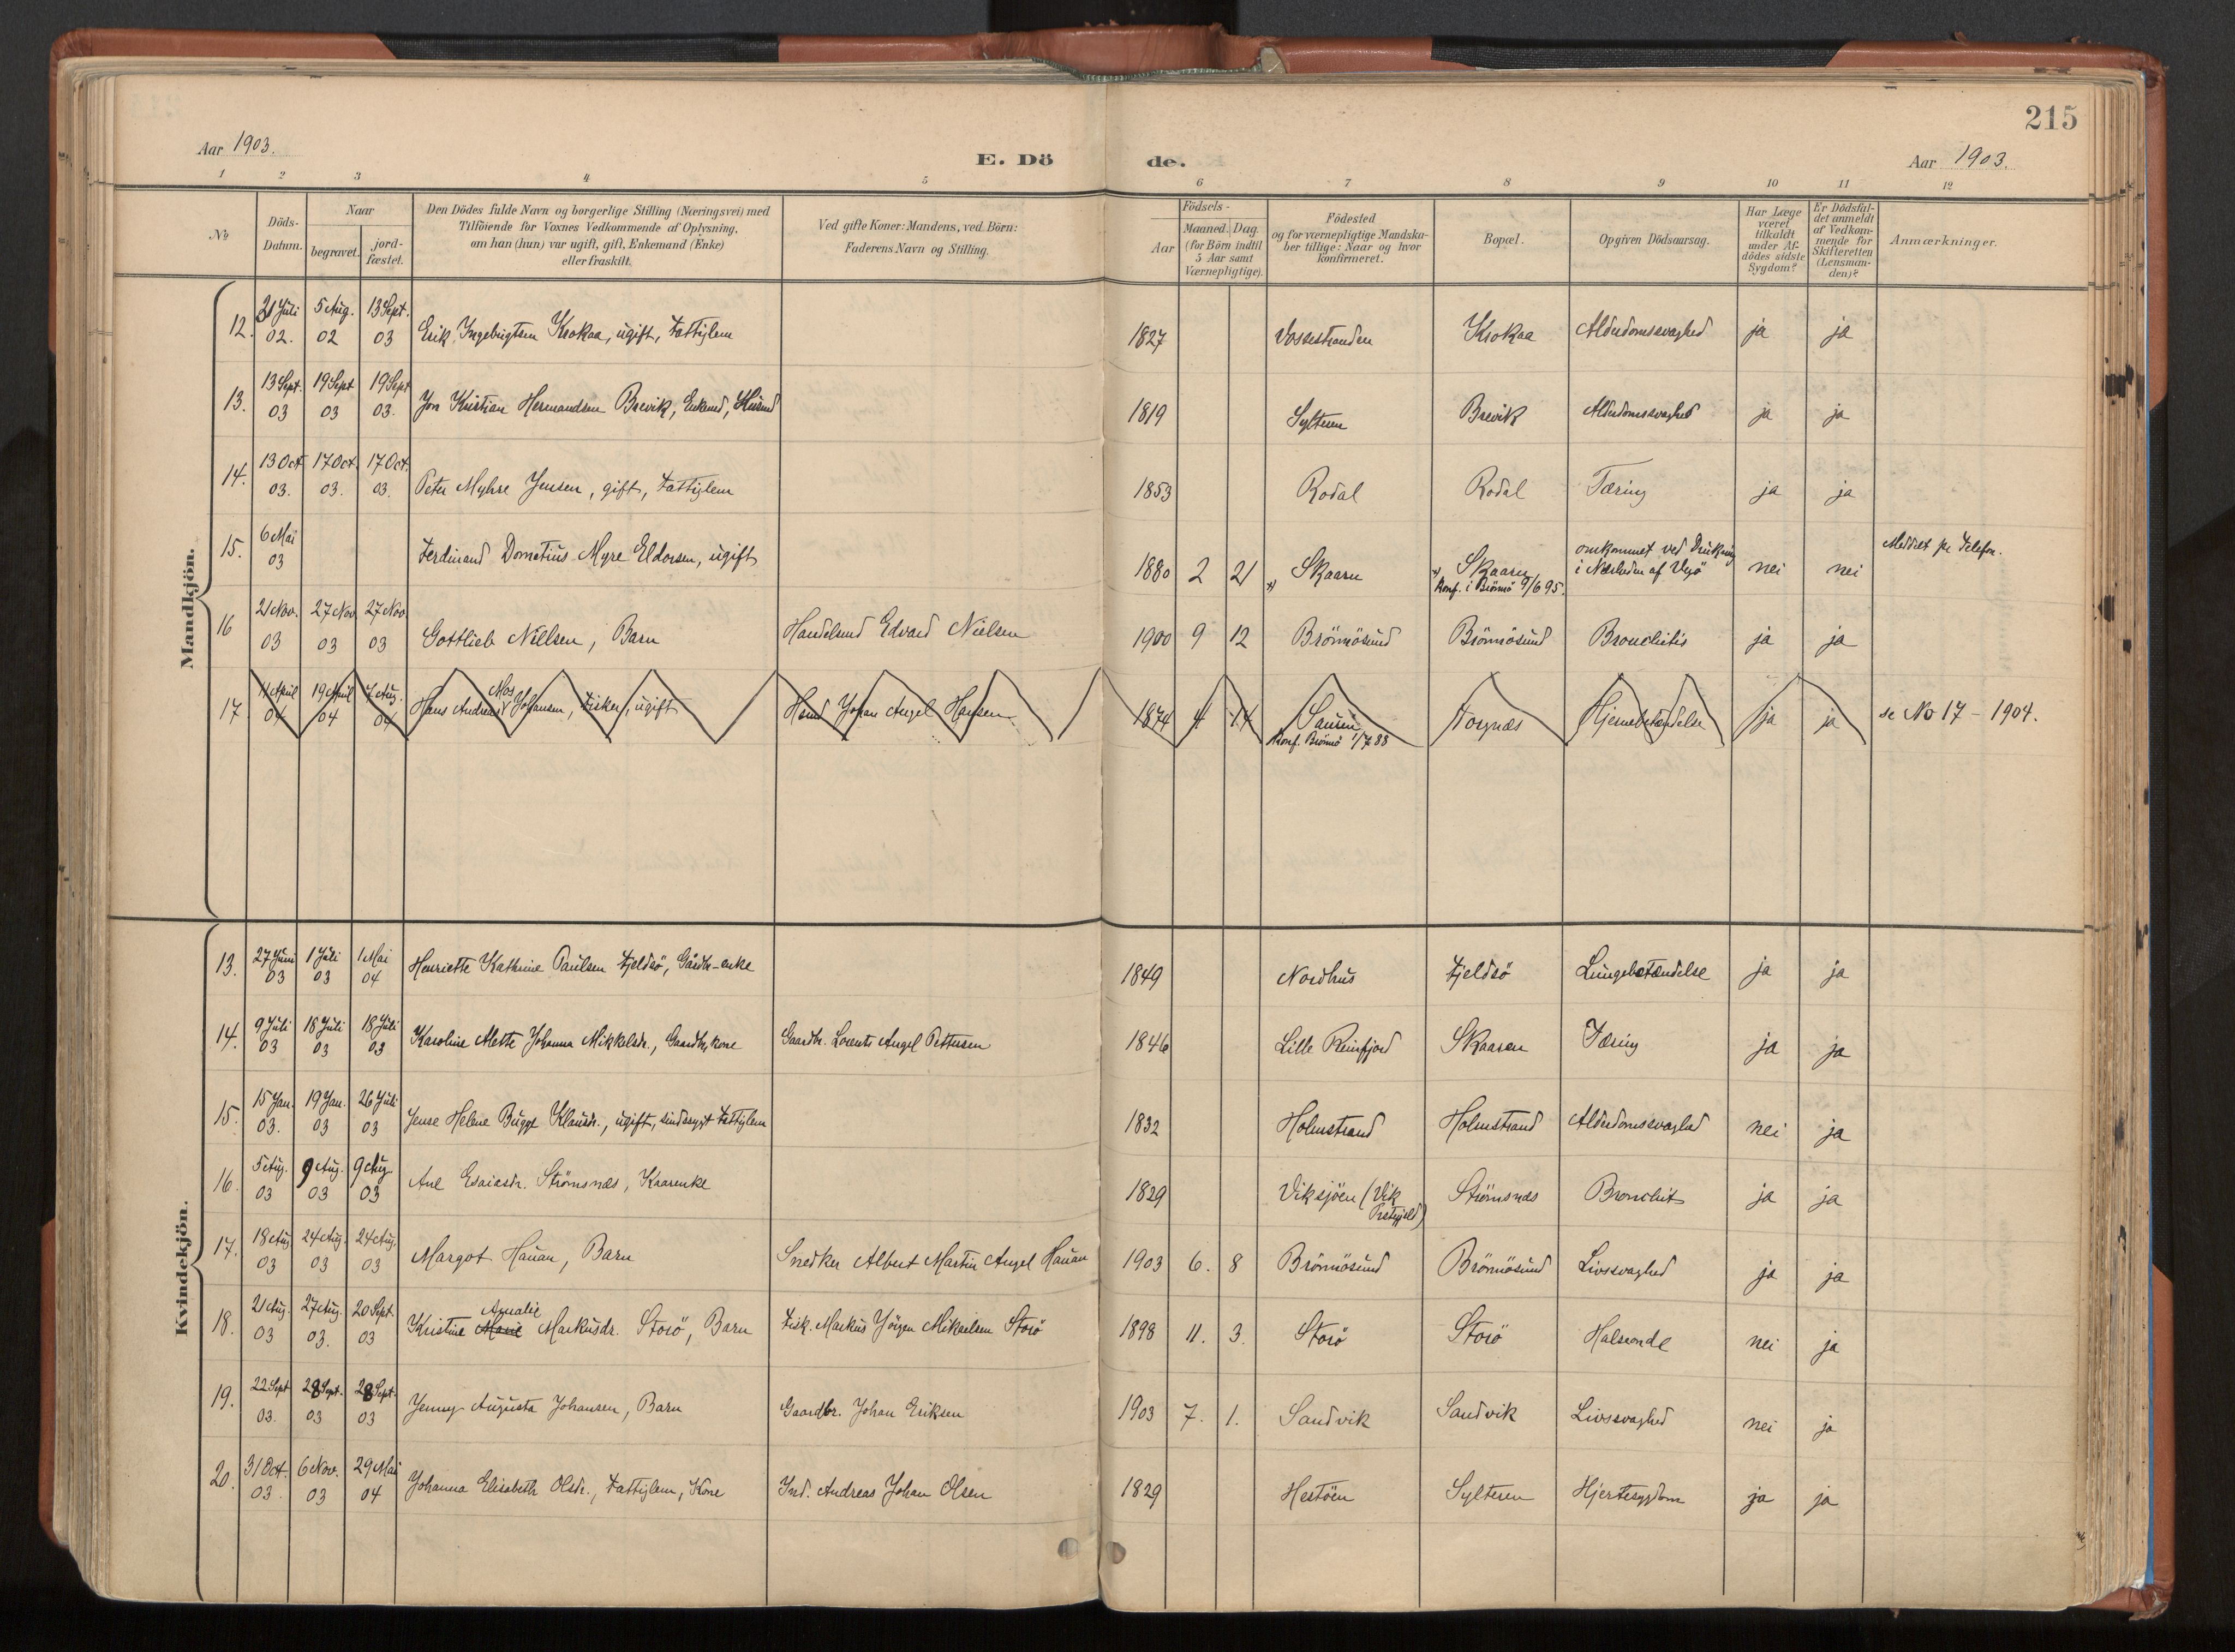 215
Aar 1903.
E. Döde.
Aar 1903.
1 2 3 4 5 6 7 8 9 10 11 12
No
Döds-Datum.
Naar
begravet.
jord-fæstet.
Den Dödes fulde Navn og borgerlige Stilling (Næringsvei) med
Tilföiende for Voxnes Vedkommende af Oplysning,
om han (hun) var ugift, gift, Enkemand (Enke)
eller fraskilt.
Ved gifte Koner: Mandens, ved Börn:
Faderens Navn og Stilling.
Födsels-
Aar
Maaned. Dag
(for Börn indtil
5 Aar samt
Værnepligtige).
Födested
og for værnepligtige Mandska-
ber tillige: Naar og hvor
konfirmeret.
Bopæl.
Opgiven Dödsaarsag.
Har Læge
været
tilkaldt
under Af-
dödes sidste
Sygdom?
Er Dödsfal-
det anmeldt
af Vedkom-
mende for
Skifteretten
(Lensman-
den)?
Anmærkninger.
Mandkjön.
12. 21 Juli 02. 5 Aug. 02 13 Sept. 03 Erik Ingebrigtsen Krokaa, ugift, Fattiglem 1827 Vossestranden Krokaa Alderdomssvaghed ja ja
13. 13 Sept. 03 19 Sept 03 19 Sept 03. Jon Kristian Hermandsen Brevik, Enkemd, Husmd 1819 Sylteren Brevik Alderdomssvaghed ja ja
14. 13 Oct 03. 17 Oct. 03. 17 Oct. 03. Peter Myhre Jensen, gift, Fattiglem 1853 Rodal Rodal Tæring ja ja
15. 6 Mai 03 Ferdinand Dometius Myre Eldorsen, ugift 1880 2 21 Skaaren Skaaren omkommet ved Drukning nei nei Meddelt pr Telefon.
Konf. i Brönnö 9/6 95. i Nærheden af Vegö
16 21 Nov. 03 27 Nov 03 27 Nov. 03 Gottlieb Nielsen, Barn Handelsmd Edvard Nielsen 1900 9 12 Brönnösund Brönnösund Bronchitis ja ja
17 11 April 04 19 April 04 7 Aug. 04 Hans Andreas Mos Johansen, Fisker, ugift Hsmd Johan Angel Hansen 1874 4 14 Sauren Torgnæs Hjernebetændelse ja ja se No 17 - 1904.
Konf. Brönnö 1/7 88
Kvindekjön.
13. 27 Juni 03 1 Juli 03 1 Mai 04 Henriette Kathrine Paulsen Fjeldsö, Gårdbr-enke 1849 Nordhus Fjeldsö Lungebetændelse ja ja
14. 9 Juli 03 18 Juli 03 18 Juli 03 Karoline Mette Johanna Mikkelsdr., Gaardbr. kone Gaardbr. Lorents Angel Pettersen 1846 Lille Reinfjord Skaaren Tæring ja ja
15. 15 Jan. 03. 19 Jan. 03 26 Juli 03 Jense Helene Bugge Klausdr., ugift, sindssygt Fattiglem 1832 Holmstrand Holmstrand Alderdomssvaghed nei ja
16. 5 Aug. 03 9 Aug. 03 9 Aug. 03 Ane Esaiasdr. Strömsnæs, Kaarenke 1829 Viksjöen (Vik Prstgjeld) Strömsnæs Bronchit ja ja
17. 18 Aug 03 24 Aug. 03 24 Aug. 03 Margot Hauan, Barn Snedker Albert Martin Angel Hauan 1903 6. 8 Brönnösund Brönnösund Livssvaghed ja ja
18. 21 Aug. 03 27 Aug. 03. 20 Sept. 03 Kristine Marie Amalie Markusdr. Storö, Barn Fisk. Markus Jörgen Mikaelsen Storö 1898 11. 3. Storö Storö Halsonde nei ja
19. 22 Sept 03. 28 Sept. 03 28 Sept. 03 Jenny Augusta Johansen, Barn Gaardbr. Johan Eriksen 1903 7. 1. Sandvik Sandvik Livssvaghed nei ja
20. 31 Oct. 03. 6 Nov. 03 29 Mai 04 Johanna Elisabeth Olsdr., Fattiglem, Kone Ind. Andreas Johan Olsen 1829 Hestöen Sylteren Hjertesygdom ja ja